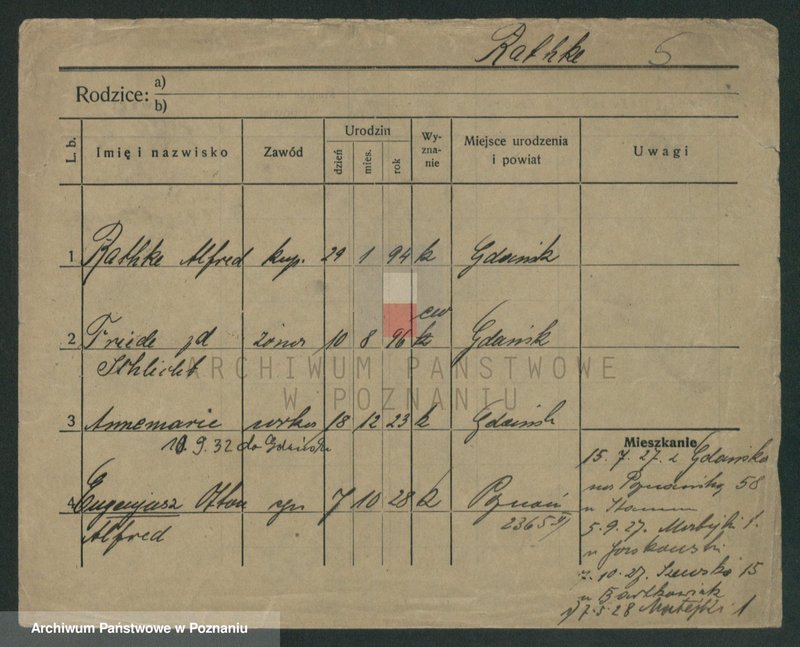 Rathke 5
Rodzice: a)
b)
L. b. Imię i nazwisko Zawód Urodzin dzień mies. rok Wy-zna-nie Miejsce urodzenia i powiat Uwagi
1 Rathke Alfred kup. 29 1 94 k Gdańsk
2 Friede żona 10 8 96 ew k Gdańsk
Schlicht
3 Annemarie córka 18 12 23 k Gdańsk
9.32 do Gdańska
4 Eugenjusz Otton syn 7 10 28 k Poznań
Alfred
Mieszkanie
15. 7. 27. z Gdańska
na Poznańską 58
u
5. 9. 27. Matejki 1.
u
10. 27. 15
u Bartkowiak
7. 5. 28 Matejki 1
ARCHIWUM PAŃSTWOWE
W POZNANIU
Archiwum Państwowe w Poznaniu